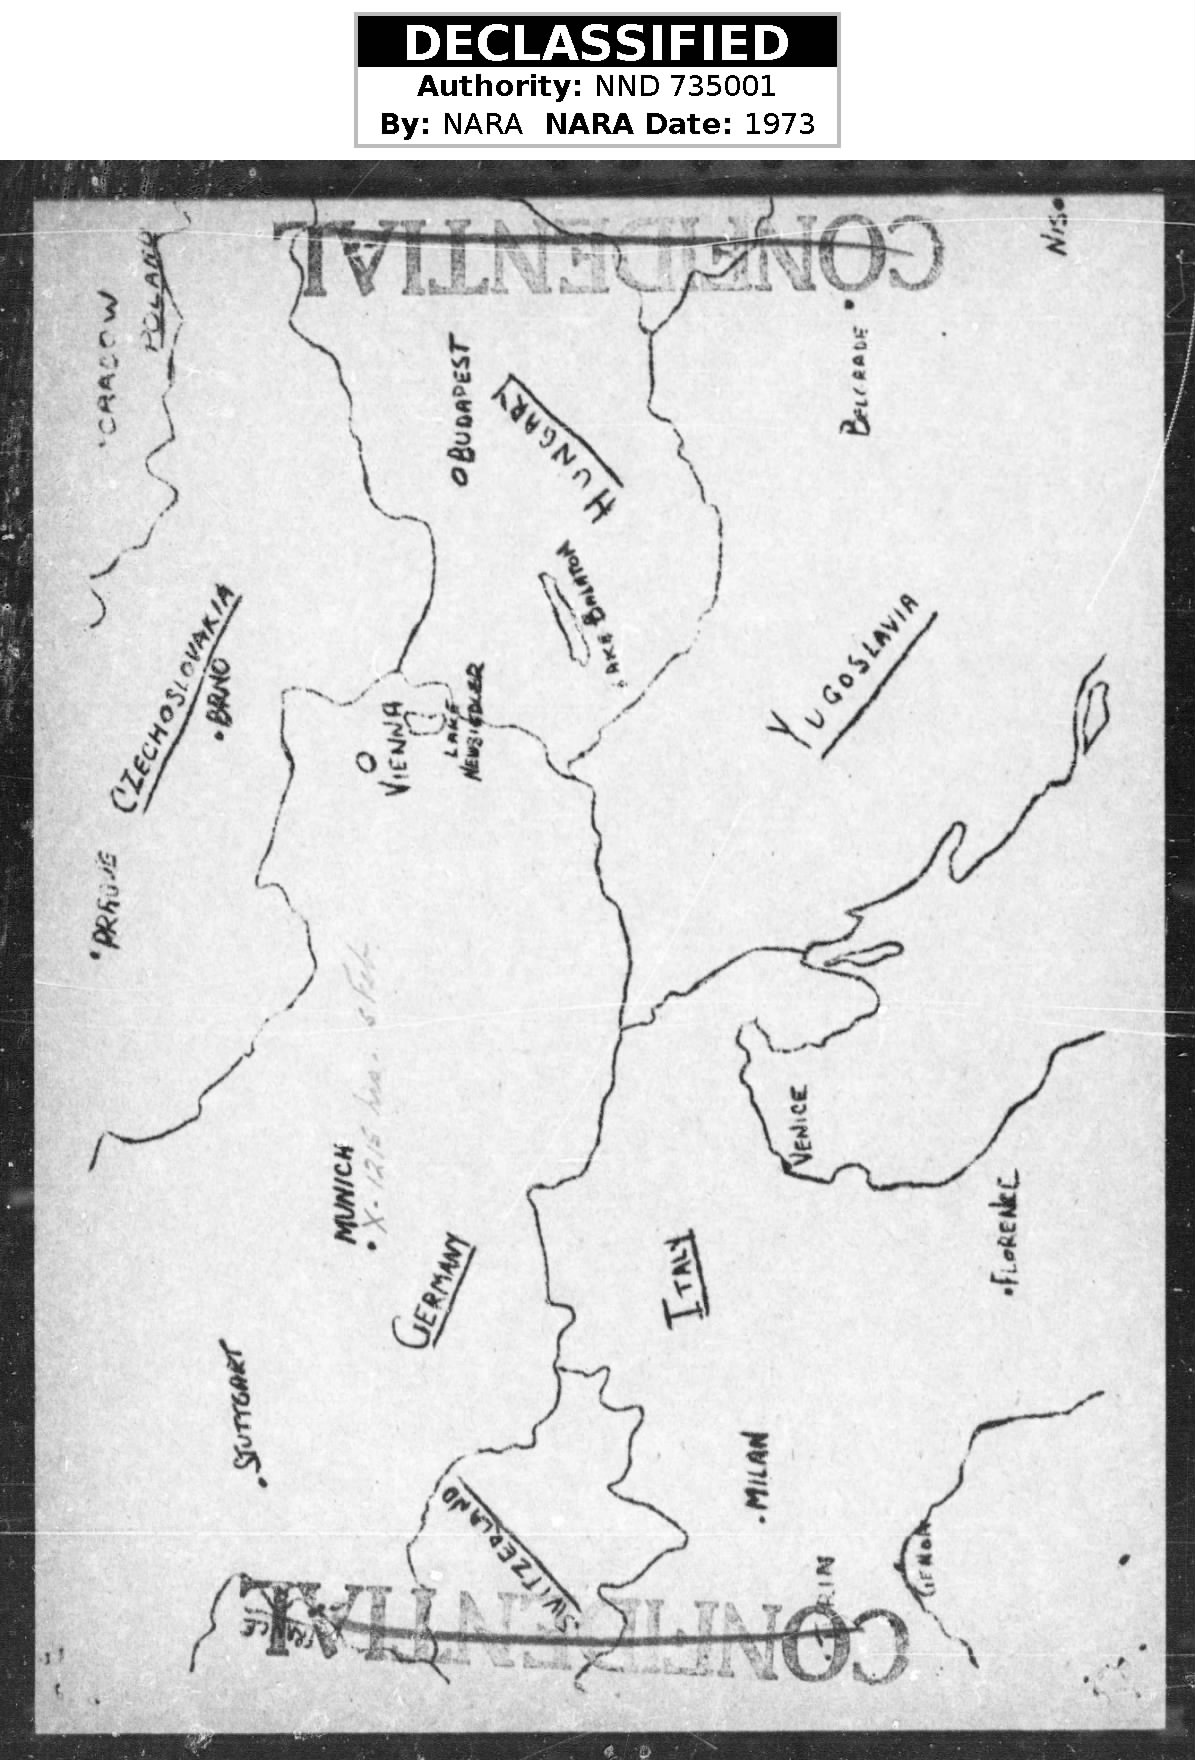 DECLASSIFIED
Authority: NND 735001
By: NARA NARA Date: 1973
CONFIDENTIAL
NIS
CRACOW
POLAND
BUDAPEST
HUNGARY
BELGRADE
LAKE BALATON
CZECHOSLOVAKIA
BRNO
VIENNA
LAKE
NEUSIEDLER
YUGOSLAVIA
PRAGUE
X-1215 hrs. 5 Feb.
MUNICH
VENICE
GERMANY
ITALY
FLORENCE
STUTTGART
MILAN
SWITZERLAND
GENOA
CONFIDENTIAL